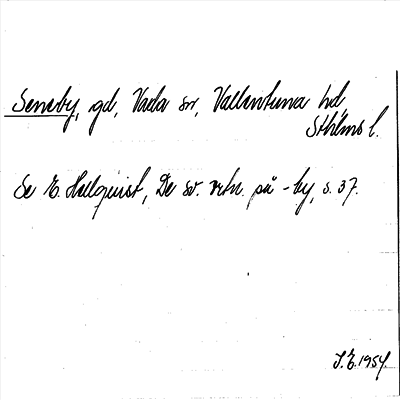 Seneby, gd, Vada sn, Vallentuna hd,
Sthlms l.
Se E. Hellquist, De sv. ortn. på -by, s. 37.
S.E. 1954.